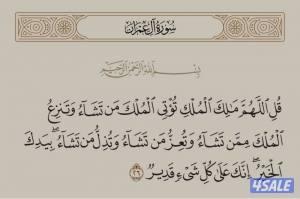 سُورَةُ آلِ عِمْرَان
بِسْمِ ٱللَّهِ ٱلرَّحْمَٰنِ ٱلرَّحِيمِ
قُلِ ٱللَّهُمَّ مَٰلِكَ ٱلْمُلْكِ تُؤْتِى ٱلْمُلْكَ مَن تَشَآءُ وَتَنزِعُ
ٱلْمُلْكَ مِمَّن تَشَآءُ وَتُعِزُّ مَن تَشَآءُ وَتُذِلُّ مَن تَشَآءُ ۖ بِيَدِكَ
ٱلْخَيْرُ ۖ إِنَّكَ عَلَىٰ كُلِّ شَىْءٍ قَدِيرٌ ٢٦
4SALE